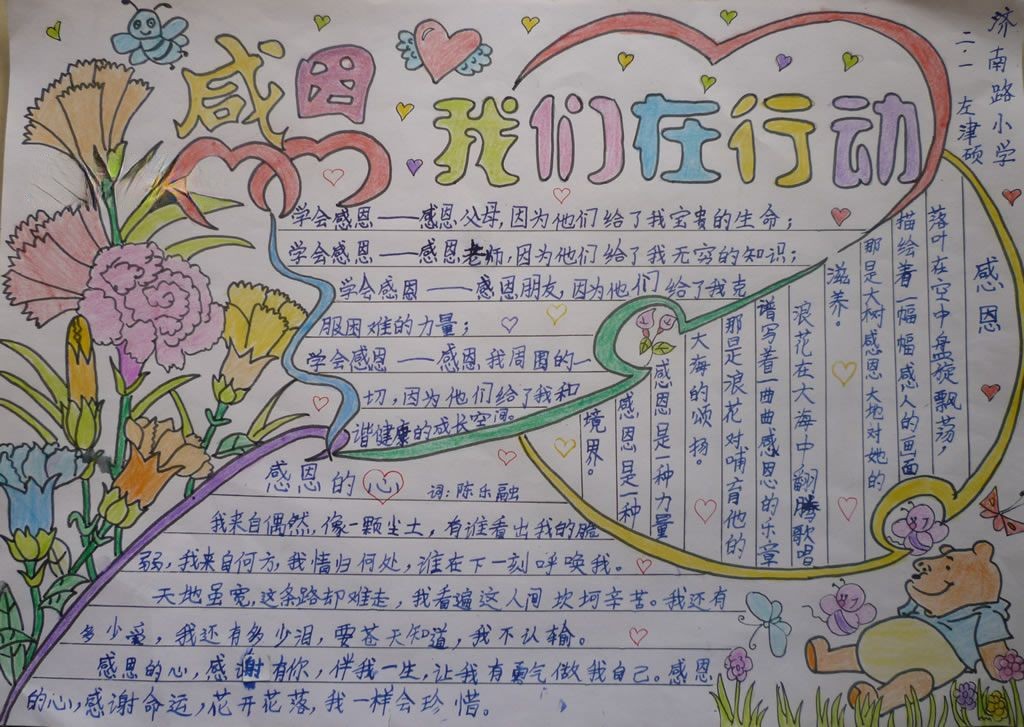 感恩
我们在行动
济南路小学
二·一 左津硕
学会感恩——感恩父母,因为他们给了我宝贵的生命;
学会感恩——感恩老师,因为他们给了我无穷的知识;
学会感恩——感恩朋友,因为他们给了我克
服困难的力量;
学会感恩——感恩我周围的一
切,因为他们给了我和
谐健康的成长空间。
感恩
落叶在空中盘旋飘荡,
描绘着一幅幅感人的画面
那是大树感恩大地对她的
滋养。
浪花在大海中翻腾歌唱
谱写着一曲曲感恩的乐章
那是浪花对哺育他的
大海的颂扬。
感恩是一种力量
感恩是一种
境界。
感恩的心
词:陈乐融
我来自偶然,像一颗尘土,有谁看出我的脆
弱,我来自何方,我情归何处,谁在下一刻呼唤我。
天地虽宽,这条路却难走,我看遍这人间坎坷辛苦。我还有
多少爱,我还有多少泪,要苍天知道,我不认输。
感恩的心,感谢有你,伴我一生,让我有勇气做我自己。感恩
的心,感谢命运,花开花落,我一样会珍惜。